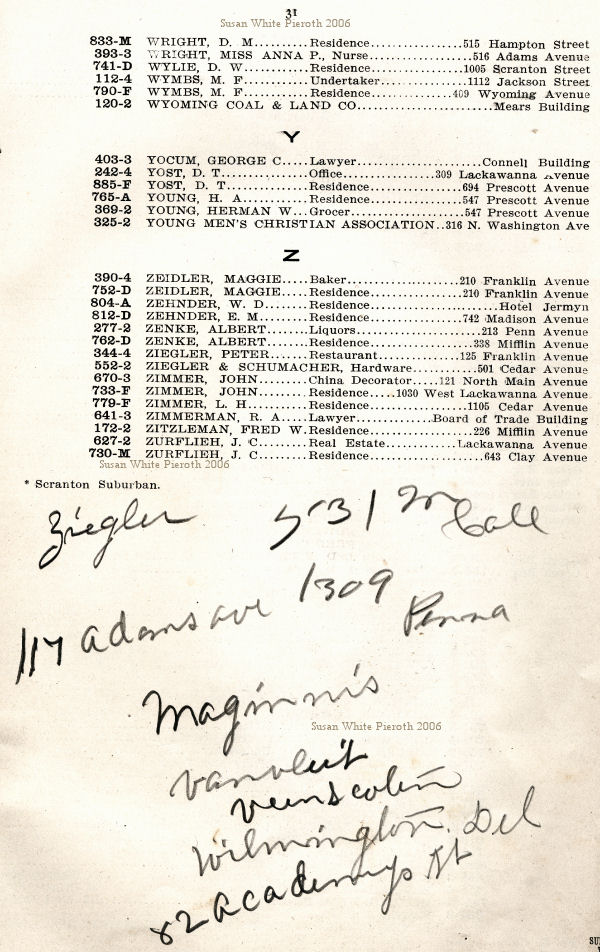 31
Susan White Pieroth 2006
833-M WRIGHT, D. M..........Residence........................515 Hampton Street
393-3 WRIGHT, MISS ANNA P., Nurse..........................516 Adams Avenue
741-D WYLIE, D. W............Residence......................1005 Scranton Street
112-4 WYMBS, M. F............Undertaker....................1112 Jackson Street
790-F WYMBS, M. F............Residence....................409 Wyoming Avenue
120-2 WYOMING COAL & LAND CO..........................Mears Building
Y
403-3 YOCUM, GEORGE C.....Lawyer.........................Connell Building
242-4 YOST, D. T..............Office..................309 Lackawanna Avenue
885-F YOST, D. T..............Residence....................694 Prescott Avenue
765-A YOUNG, H. A............Residence....................547 Prescott Avenue
369-2 YOUNG, HERMAN W...Grocer.......................547 Prescott Avenue
325-2 YOUNG MEN'S CHRISTIAN ASSOCIATION..316 N. Washington Ave
Z
390-4 ZEIDLER, MAGGIE.....Baker.........................210 Franklin Avenue
752-D ZEIDLER, MAGGIE.....Residence....................210 Franklin Avenue
804-A ZEHNDER, W. D.......Residence........................Hotel Jermyn
812-D ZEHNDER, E. M........Residence....................742 Madison Avenue
277-2 ZENKE, ALBERT.......Liquors.........................213 Penn Avenue
762-D ZENKE, ALBERT.......Residence......................338 Mifflin Avenue
344-4 ZIEGLER, PETER.......Restaurant...................125 Franklin Avenue
552-2 ZIEGLER & SCHUMACHER, Hardware..............501 Cedar Avenue
670-3 ZIMMER, JOHN.........China Decorator.....121 North Main Avenue
733-F ZIMMER, JOHN.........Residence....1030 West Lackawanna Avenue
779-F ZIMMER, L. H...........Residence......................1105 Cedar Avenue
641-3 ZIMMERMAN, R. A.....Lawyer................Board of Trade Building
172-2 ZITZLEMAN, FRED W. Residence....................226 Mifflin Avenue
627-2 ZURFLIEH, J. C........Real Estate..............Lackawanna Avenue
730-M ZURFLIEH, J. C........Residence........................643 Clay Avenue
Susan White Pieroth 2006
* Scranton Suburban.
Ziegler 531 M Call
117 adams ave 1309 Penna
Maginnis
Susan White Pieroth 2006
vanvleit
Wilmington. Del
82 academys St